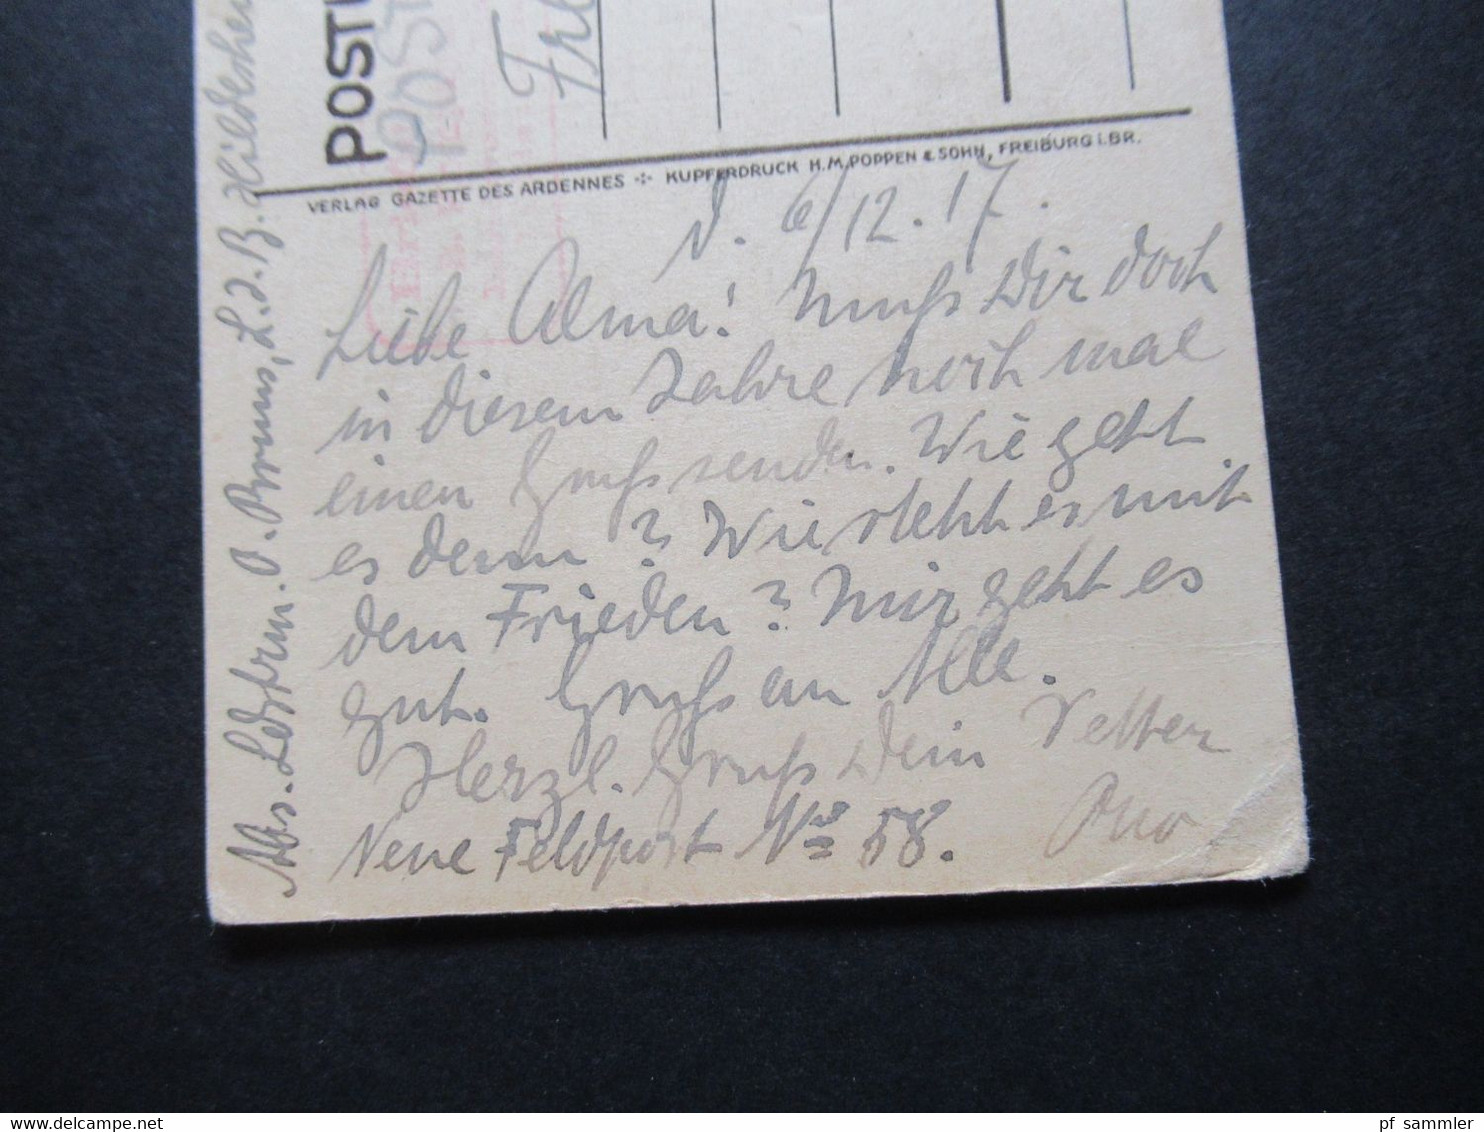 POST
Frl
VERLAG GAZETTE DES ARDENNES ⁘ KUPFERDRUCK H.M.POPPEN & SOHN, FREIBURG I.BR.
d. 6/12.17.
Liebe Alma! Muß Dir doch
in diesem Jahre noch mal
einen Gruß senden. Wie geht
es denn? Wie steht es mit
dem Frieden? Mir geht es
gut. Gruß an Alle.
Herzl. Gruß Dein Vetter
Otto
Neue Feldpost No 58.
Abs. Ldstrm. O. Bruns, L.d.B. Hildesheim
pf sammler
delcampe.net